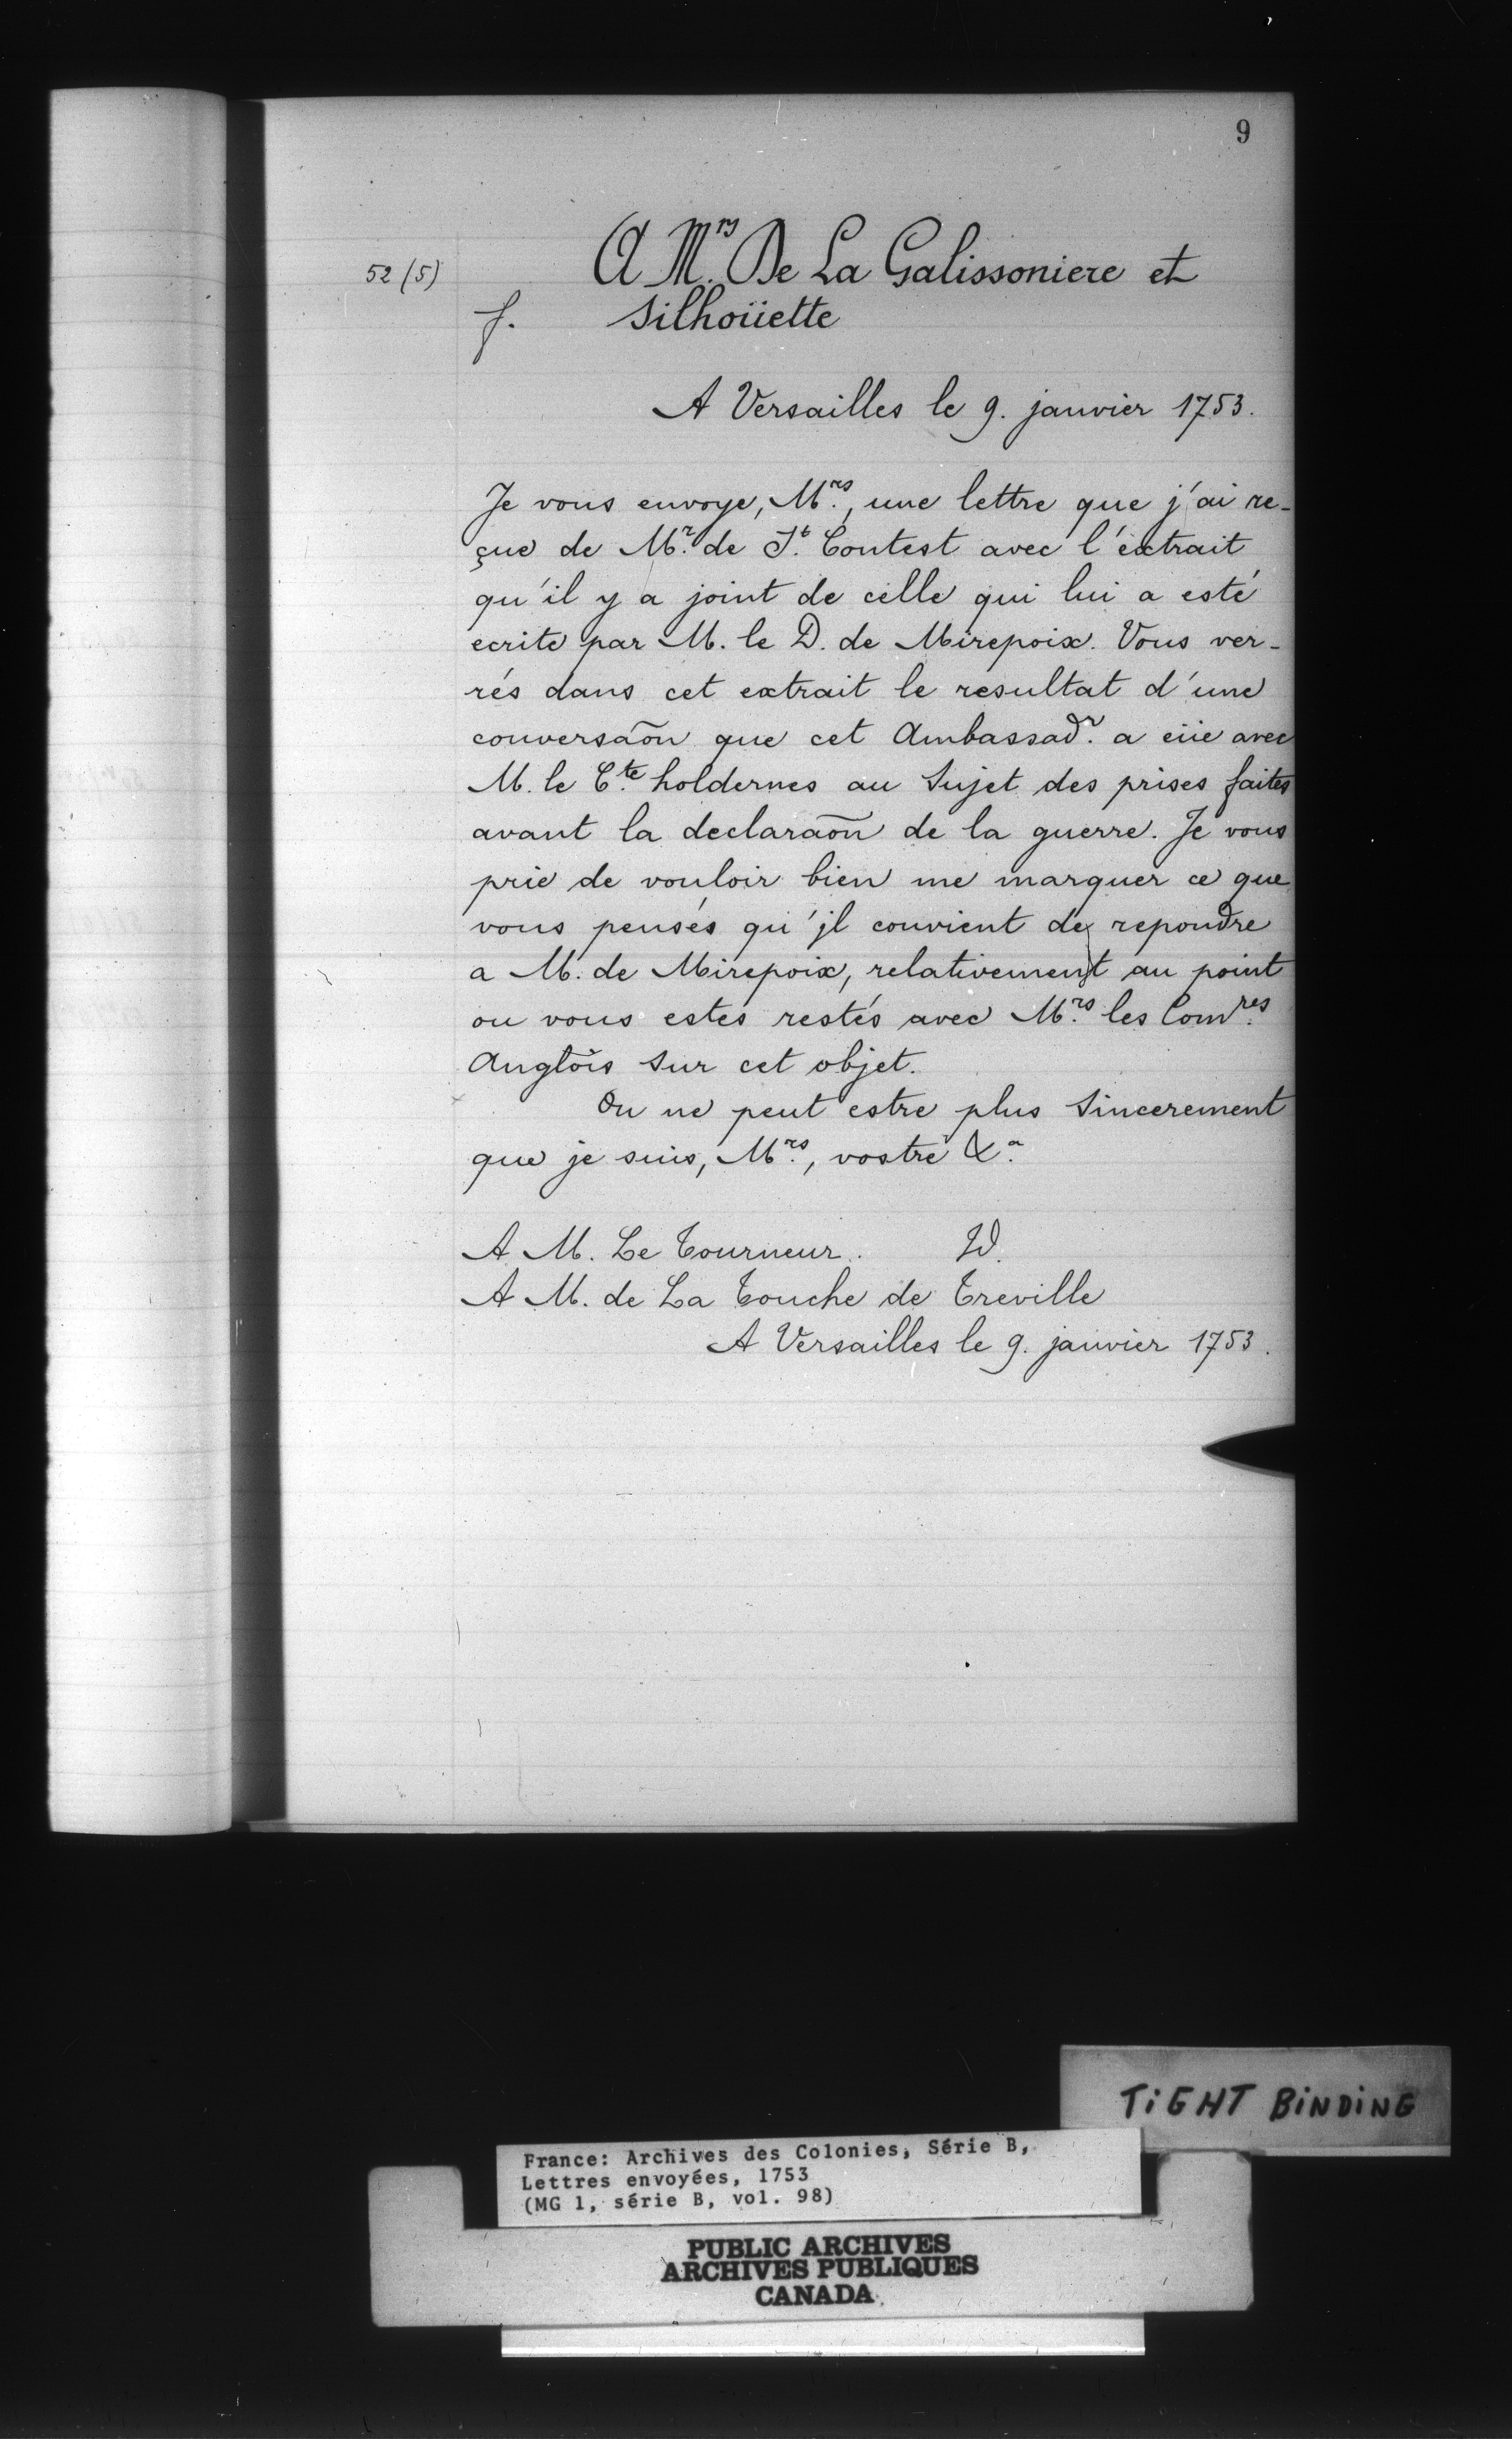 9
A M.rs De La Galissoniere et
52 (5)
f. Silhoüette
A Versailles le 9. janvier 1753.
Je vous envoye, M.rs, une lettre que j'ai re-
çue de M.r de S.t Contest avec l'extrait
qu'il y a joint de celle qui lui a esté
ecrite par M. le D. de Mirepoix. Vous ver-
rés dans cet extrait le resultat d'une
conversaõn que cet Ambassad.r a eüe avec
M. le C.te holdernes au Sujet des prises faites
avant la declaraõn de la guerre. Je vous
prie de vouloir bien me marquer ce que
vous pensés qu'jl convient de repondre
a M. de Mirepoix, relativement au point
ou vous estes restés avec M.rs les Com.res
Anglois Sur cet objet.
On ne peut estre plus Sincerement
que je suis, M.rs, vostre &.a
A M. Le Tourneur. W.
A M. de La Touche de Treville
A Versailles le 9. janvier 1753.
TiGHT BiNDiNG
France: Archives des Colonies, Série B,
Lettres envoyées, 1753
(MG 1, série B, vol. 98)
PUBLIC ARCHIVES
ARCHIVES PUBLIQUES
CANADA